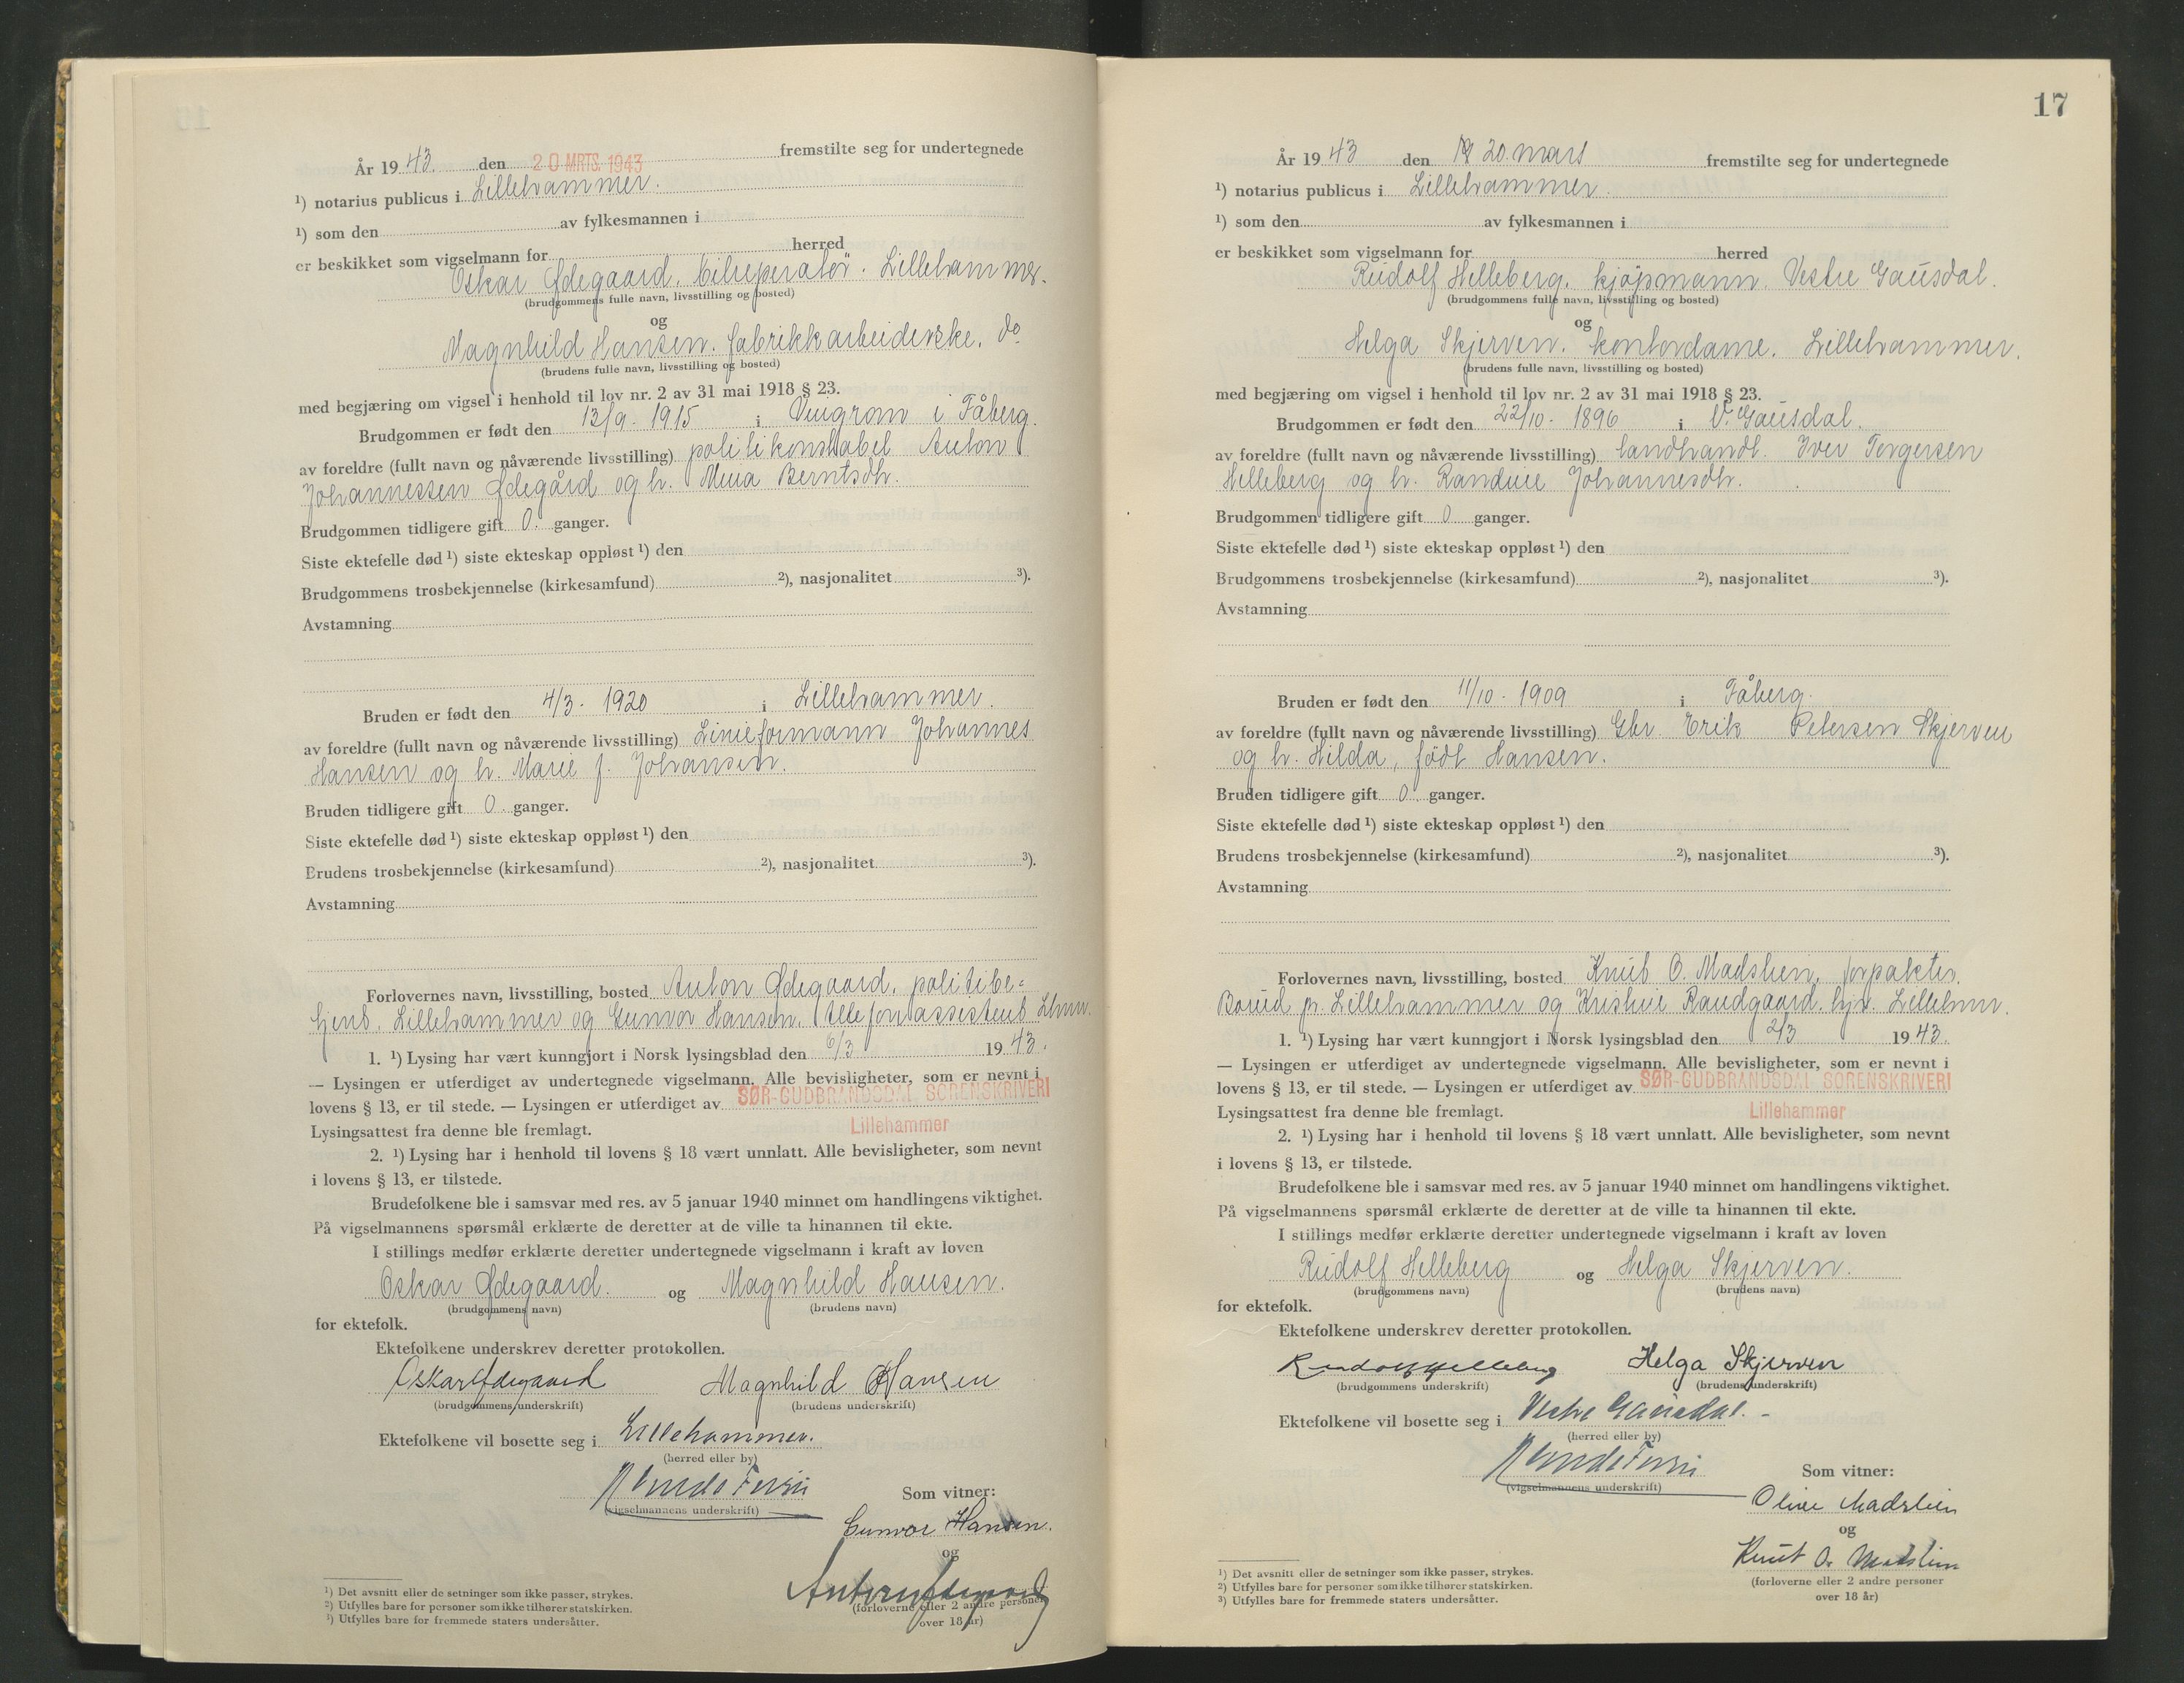 År 1943. den 20 MRTS. 1943 fremstilte seg for undertegnede
¹) notarius publicus i Lillehammer.
¹) som den av fylkesmannen i
er beskikket som vigselmann for herred
Oskar Ødegaard, bilreperatör. Lillehammer.
(brudgommens fulle navn, livsstilling og bosted)
og
Magnhild Hansen. fabrikkarbeiderske. do
(brudens fulle navn, livsstilling og bosted)
med begjæring om vigsel i henhold til lov nr. 2 av 31 mai 1918 § 23.
Brudgommen er født den 13/9. 1915 i Vingrom i Fåberg.
av foreldre (fullt navn og nåværende livsstilling) politikonstabel Anton
Johannessen Ødegård og h. Mina Berntsdtr.
Brudgommen tidligere gift 0. ganger.
Siste ektefelle død ¹) siste ekteskap oppløst ¹) den
Brudgommens trosbekjennelse (kirkesamfund) ²), nasjonalitet ³).
Avstamning
Bruden er født den 4/3. 1920 i Lillehammer.
av foreldre (fullt navn og nåværende livsstilling) Linieformann Johannes
Hansen og h. Marie f. Johansen.
Bruden tidligere gift 0. ganger.
Siste ektefelle død ¹) siste ekteskap oppløst ¹) den
Brudens trosbekjennelse (kirkesamfund) ²), nasjonalitet ³).
Avstamning
Forlovernes navn, livsstilling, bosted Anton Ødegaard, politibe=
tjent, Lillehammer og Gunvor Hansen, telefonassistent Lhmr.
1. ¹) Lysing har vært kunngjort i Norsk lysingsblad den 6/3 1943.
— Lysingen er utferdiget av undertegnede vigselmann. Alle bevisligheter, som er nevnt i
lovens § 13, er til stede. — Lysingen er utferdiget av SØR-GUDBRANDSDAL SORENSKRIVERI
Lysingsattest fra denne ble fremlagt. Lillehammer
2. ¹) Lysing har i henhold til lovens § 18 vært unnlatt. Alle bevisligheter, som nevnt
i lovens § 13, er tilstede.
Brudefolkene ble i samsvar med res. av 5 januar 1940 minnet om handlingens viktighet.
På vigselmannens spørsmål erklærte de deretter at de ville ta hinannen til ekte.
I stillings medfør erklærte deretter undertegnede vigselmann i kraft av loven
Oskar Ødegaard. og Magnhild Hansen.
(brudgommens navn) (brudens navn)
for ektefolk.
Ektefolkene underskrev deretter protokollen.
Oskar Ødegaard Magnhild Hansen
(brudgommens underskrift) (brudens underskrift)
Ektefolkene vil bosette seg i Lillehammer.
(herred eller by)
(vigselmannens underskrift) Som vitner:
Gunvor Hansen.
og
Anton Ødegaard
(forloverne eller 2 andre personer
over 18 år)
¹) Det avsnitt eller de setninger som ikke passer, strykes.
²) Utfylles bare for personer som ikke tilhører statskirken.
³) Utfylles bare for fremmede staters undersåtter.
17
År 1943 den 20. mars fremstilte seg for undertegnede
¹) notarius publicus i Lillehammer.
¹) som den av fylkesmannen i
er beskikket som vigselmann for herred
Rudolf Helleberg, kjöpmann, Vestre Gausdal.
(brudgommens fulle navn, livsstilling og bosted)
og
Helga Skjerven, kontordame. Lillehammer.
(brudens fulle navn, livsstilling og bosted)
med begjæring om vigsel i henhold til lov nr. 2 av 31 mai 1918 § 23.
Brudgommen er født den 22/10. 1896 i V. Gausdal.
av foreldre (fullt navn og nåværende livsstilling) landhandl. Iver Torgersen
Helleberg og h. Randine Johannesdtr.
Brudgommen tidligere gift 0 ganger.
Siste ektefelle død ¹) siste ekteskap oppløst ¹) den
Brudgommens trosbekjennelse (kirkesamfund) ²), nasjonalitet ³).
Avstamning
Bruden er født den 11/10. 1909 i Fåberg.
av foreldre (fullt navn og nåværende livsstilling) Gbr. Erik Petersen Skjerven
og h. Hilda, födt Hansen.
Bruden tidligere gift 0. ganger.
Siste ektefelle død ¹) siste ekteskap oppløst ¹) den
Brudens trosbekjennelse (kirkesamfund) ²), nasjonalitet ³).
Avstamning
Forlovernes navn, livsstilling, bosted Knut O. Madslien, forpakter,
Borud pr. Lillehammer og Kristine Randgaard, hjv. Lillehmr.
1. ¹) Lysing har vært kunngjort i Norsk lysingsblad den 2/3 1943.
— Lysingen er utferdiget av undertegnede vigselmann. Alle bevisligheter, som er nevnt i
lovens § 13, er til stede. — Lysingen er utferdiget av SØR-GUDBRANDSDAL SORENSKRIVERI
Lysingsattest fra denne ble fremlagt. Lillehammer
2. ¹) Lysing har i henhold til lovens § 18 vært unnlatt. Alle bevisligheter, som nevnt
i lovens § 13, er tilstede.
Brudefolkene ble i samsvar med res. av 5 januar 1940 minnet om handlingens viktighet.
På vigselmannens spørsmål erklærte de deretter at de ville ta hinannen til ekte.
I stillings medfør erklærte deretter undertegnede vigselmann i kraft av loven
Rudolf Helleberg og Helga Skjerven.
(brudgommens navn) (brudens navn)
for ektefolk.
Ektefolkene underskrev deretter protokollen.
Rudolf Helleberg Helga Skjerven
(brudgommens underskrift) (brudens underskrift)
Ektefolkene vil bosette seg i Vestre Gausdal. -
(herred eller by)
(vigselmannens underskrift) Som vitner:
Oline Madslien
og
Knut O. Madslien
(forloverne eller 2 andre personer
over 18 år)
¹) Det avsnitt eller de setninger som ikke passer, strykes.
²) Utfylles bare for personer som ikke tilhører statskirken.
³) Utfylles bare for fremmede staters undersåtter.